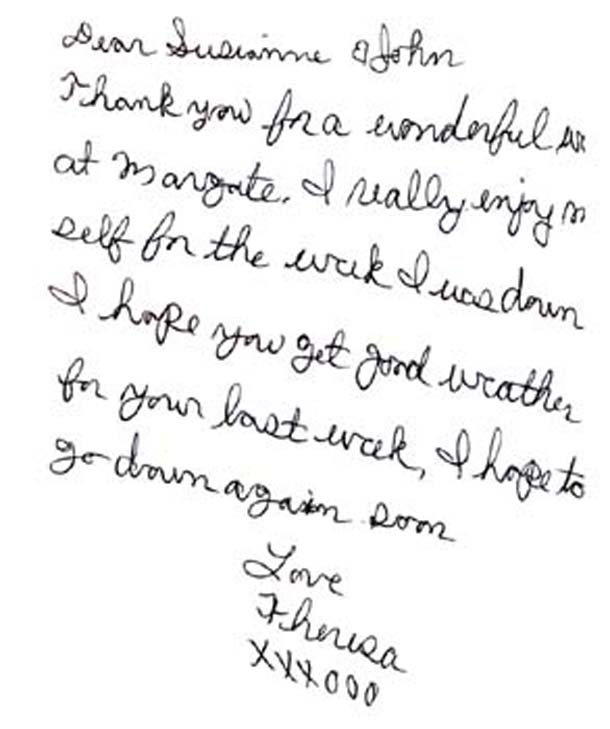 Dear Susianne & John
Thank you for a wonderful
at Margate. I really enjoy m
self for the week I was down
I hope you get good weather
for your last week, I hope to
go down again soon
Love
Theresa
XXX000